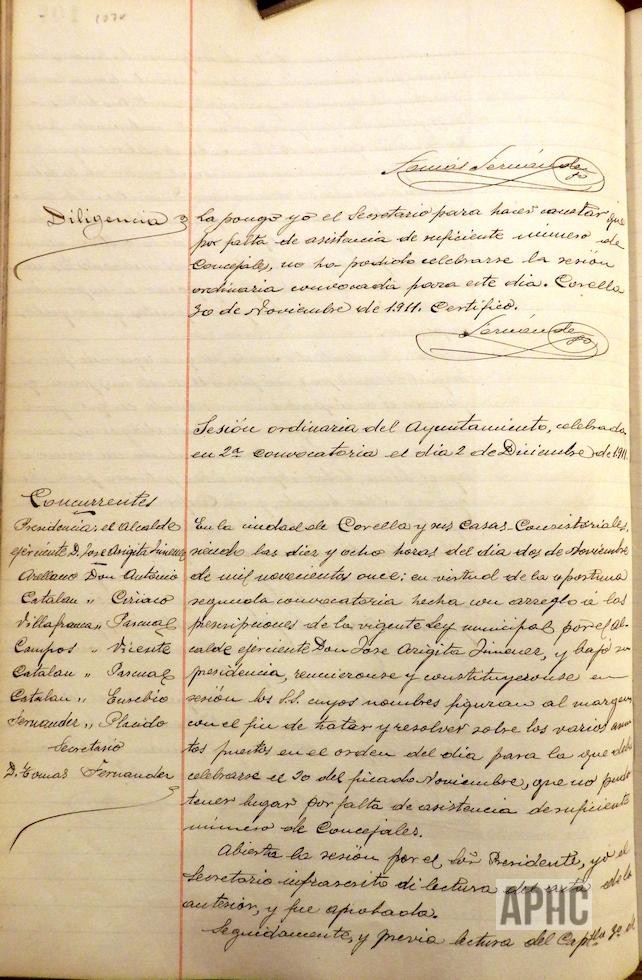 1070
Tomás Fernández
Diligencia
La pongo yo el Secretario para hacer constar que
por falta de asistencia de suficiente número de
Concejales, no ha podido celebrarse la sesión
ordinaria convocada para este dia. Corella
30 de Noviembre de 1911. Certifico.
Fernández
Sesión ordinaria del Ayuntamiento, celebrada
en 2ª convocatoria el dia 2 de Diciembre de 1911.
Concurrentes
Presidencia: el Alcalde
ejerciente D. Jose Arigita Jimenez
Arellano Don Antonio
Catalan " Ciriaco
Villafranca " Pascual
Campos " Vicente
Catalan " Pascual
Catalan " Eusebio
Fernandez " Placido
Secretario
D. Tomas Fernandez
En la ciudad de Corella y sus Casas Consistoriales,
siendo las diez y ocho horas del dia dos de Noviembre
de mil novecientos once; en virtud de la oportuna
segunda convocatoria hecha con arreglo á las
prescripciones de la vigente Ley municipal por el Al-
calde ejerciente Don Jose Arigita Jimenez, y bajo su
presidencia, reunieronse y constituyeronse en
sesión los S.S. cuyos nombres figuran al margen,
con el fin de tratar y resolver sobre los varios asun-
tos puestos en el orden del dia para la que debió
celebrarse el 30 del ficado Noviembre, que no pudo
tener lugar por falta de asistencia de suficiente
número de Concejales.
Abierta la sesión por el Sor Presidente, yo el
Secretario infrascrito di lectura del acta de la
anterior, y fue aprobada.
Seguidamente, y previa lectura del Captlo 3º del
APHC